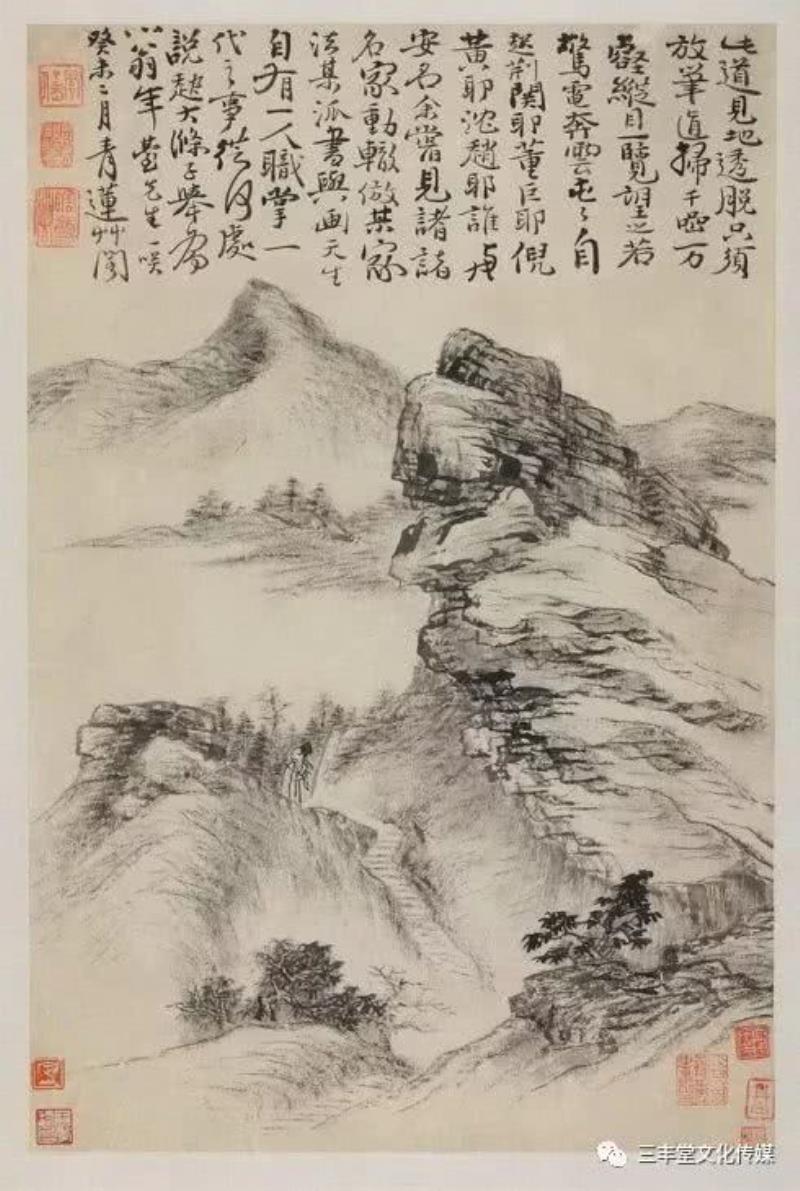 此道見地透脫只須
放筆直掃千巖万
壑縱目一覽望之若
驚電奔雲屯屯自
起荆関耶董巨耶倪
黄耶沈趙耶誰与
安名余嘗見諸諸
名家動轍倣某家
法某派書與画天生
自有一人職掌一
代之事從何處
說起大滌子舉為
翁年臺先生一笑
癸未二月青蓮艸閣
三丰堂文化传媒